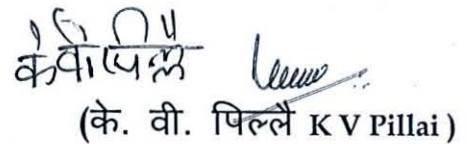 के वी पिल्लै
(के. वी. पिल्लै K V Pillai )